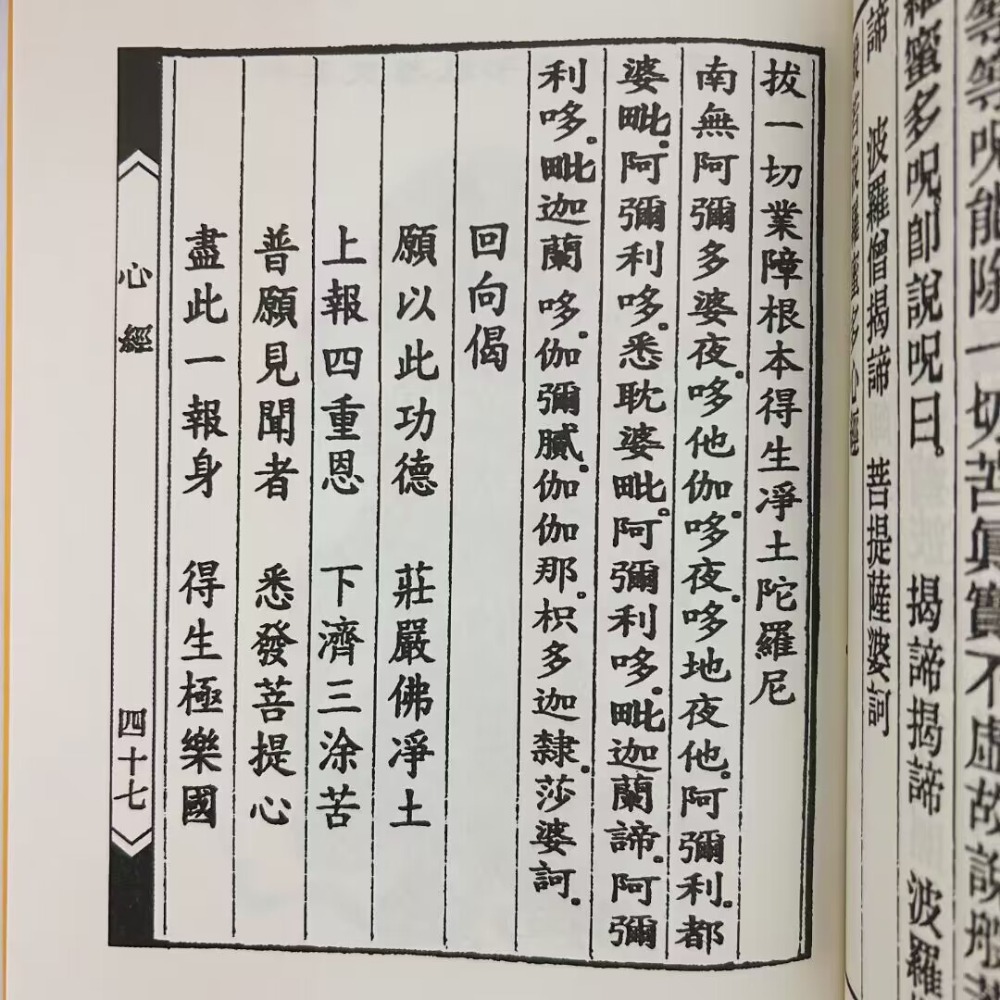 等呪能除一切苦眞實不虛故說般
羅蜜多呪。卽說呪曰。 揭諦揭諦 波羅
諦 波羅僧揭諦 菩提薩婆訶
般若波羅蜜多心經
拔一切業障根本得生凈土陀羅尼
南無阿彌多婆夜。哆他伽。哆夜。哆地夜他。阿彌利。都
婆毗。阿彌利哆。悉耽婆毗。阿彌利哆。毗迦蘭諦。阿彌
利哆。毗迦蘭哆。伽彌膩。伽伽那。枳多迦隸。莎婆訶。
回向偈
願以此功德 莊嚴佛凈土
上報四重恩 下濟三涂苦
普願見聞者 悉發菩提心
盡此一報身 得生極樂國
心經
四十七